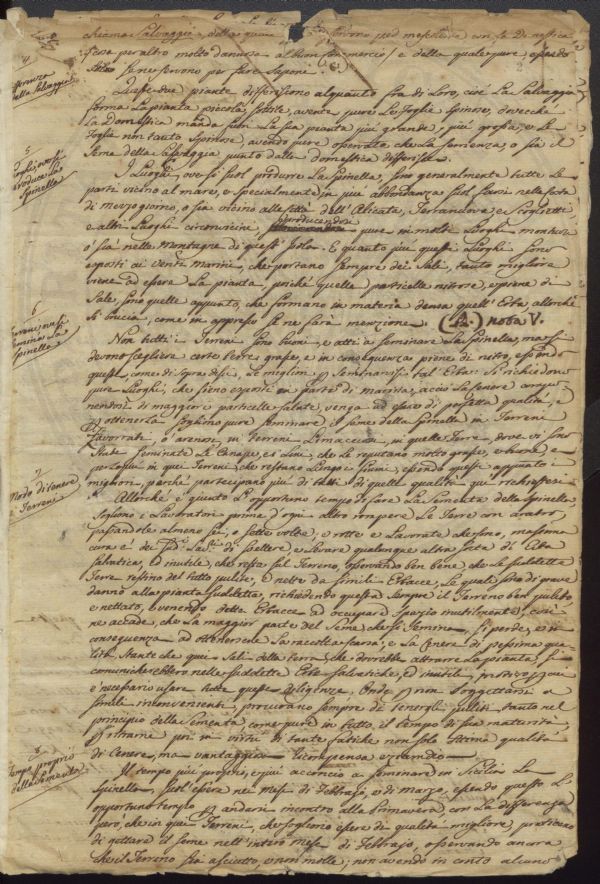 chiama Salvaggia, della quale
per altro molto danosa al buon commercio / e della quale pure
Se ne servono per fare Sapone.
4
differenza
della Salvaggia
Queste due piante differiscono alquanto fra di Loro, cioè La Salvaggia
forma La pianta piccola, sottile, avente pure Le foglie Spinose, dovecchè
La Domestica manda fuori La sua pianta più grande, più grossa, e Le
foglie non tanto Spinose, avendo pure osservato che La Semenza, o sia il
Seme della Salvaggia punto dalla domestica differisce.
5
Luoghi, ove si
produce La
Spinella
I Luoghi, ove si suol produrre La Spinella, sono generalmente tutte Le
parti vicino al mare, e Specialmente in più abbondanza
di mezzogiorno, o sia vicino alle Città dell'Alicata, Terranova, e Scoglietti
e altri Luoghi circonvicini, producendosi pure in molti Luoghi montuosi
o sia nelle Montagne di quest'Isola. E quanto più questi Luoghi sono
esposti ai venti Marini, che portano Sempre dei Sali, tanto migliore
viene ad essere La pianta, poichè quelle particelle nitrose, e piene di
Sale, sono quelle appunto, che formano in materia densa quell'Erba allorchè
Si brucia, come in appresso se ne farà menzione. (A.) nota V.
6
Terreni, ove si
Semina La
Spinella
Non tutti i Terreni sono buoni, e atti a seminare La Spinella, ma si
devono scegliere certe terre grasse, e in conseguenza piene di nitro, essendo
queste come di sopra dissi, Le migliori p Seminarsi tal Erba. Si richiedono
pure Luoghi, che sieno esposti in parte di marina, acciò La Cenere
nendosi di maggiore particelle salate, venga ad essere di perfetta qualità, e
p ottenerla Sogliono pure Seminare il Seme della Spinella in Terreni
favorati, o arenosi, in Terreni Limacciosi, in quelle Terre, dove vi sono
State Seminate Le Canape, e i Lini, che Le reputano molto grasse, e buone, e
in quei Terreni, che restano Lungo i fiumi, essendo questi appunto i
migliori, perchè partecipano più di tutti di quelle qualità qui richieste.
7
Modo di tenere
i Terreni
Allorchè è giunto L'opportuno tempo di fare La Sementa della Spinella,
Sogliono i Lavoratori prima d'ogni altro rompere Le Terre con aratro
passandole almeno sei, o sette volte; e rotte e Lavorate che sono, massima
cura è dei di Scegliere, e Levare qualunque altra sorta di Erba
Salvatica, ed inutile, che resta sul Terreno, osservando ben bene che Le suddette
Terre restino del tutto pulite, e nette da simili Erbacce, Le quali sono di grave
danno alla pianta suddetta, richiedendo questa sempre il Terreno ben pulito
e nettato, e venendo dette Erbacce ad occupare Spazio inutilmente, così
ne accade, che La maggior parte del Seme che si Semina si perde, e in
conseguenza ad ottenersele La raccolta scarsa, e La Cenere di pessima qua-
lità, Stante che quei Sali della terra, che dovrebbe attrarre La pianta, si
comunicherebbero nelle suddette Erbe Salvatiche, ed inutili,
è necessario usare tutte queste diligenze. Onde p non soggettarsi a
simile inconveniente, procurano sempre di tenergli puliti tanto nel
principio della Sementa come pure in tutto il tempo di sua maturità,
p ritrarne poi in virtù di tante fatiche non solo ottima qualità
di Cenere, ma vantaggiosa Ricompensa
8
Tempo proprio
della Sementa
Il tempo più proprio, e più acconcio a seminare in Sicilia La
Spinella, suol essere nei Mesi di Febbrajo, e di marzo, essendo questo L'
opportuno tempo p andersi incontro alla Primavera, con La differenza
però, che in quei Terreni, che sogliono essere di qualità migliore, praticano
di gettare il Seme nell'intero mese di Febbrajo, osservando ancora
che il Terreno sia asciutto, e non molle; non avendo in conto alcuno